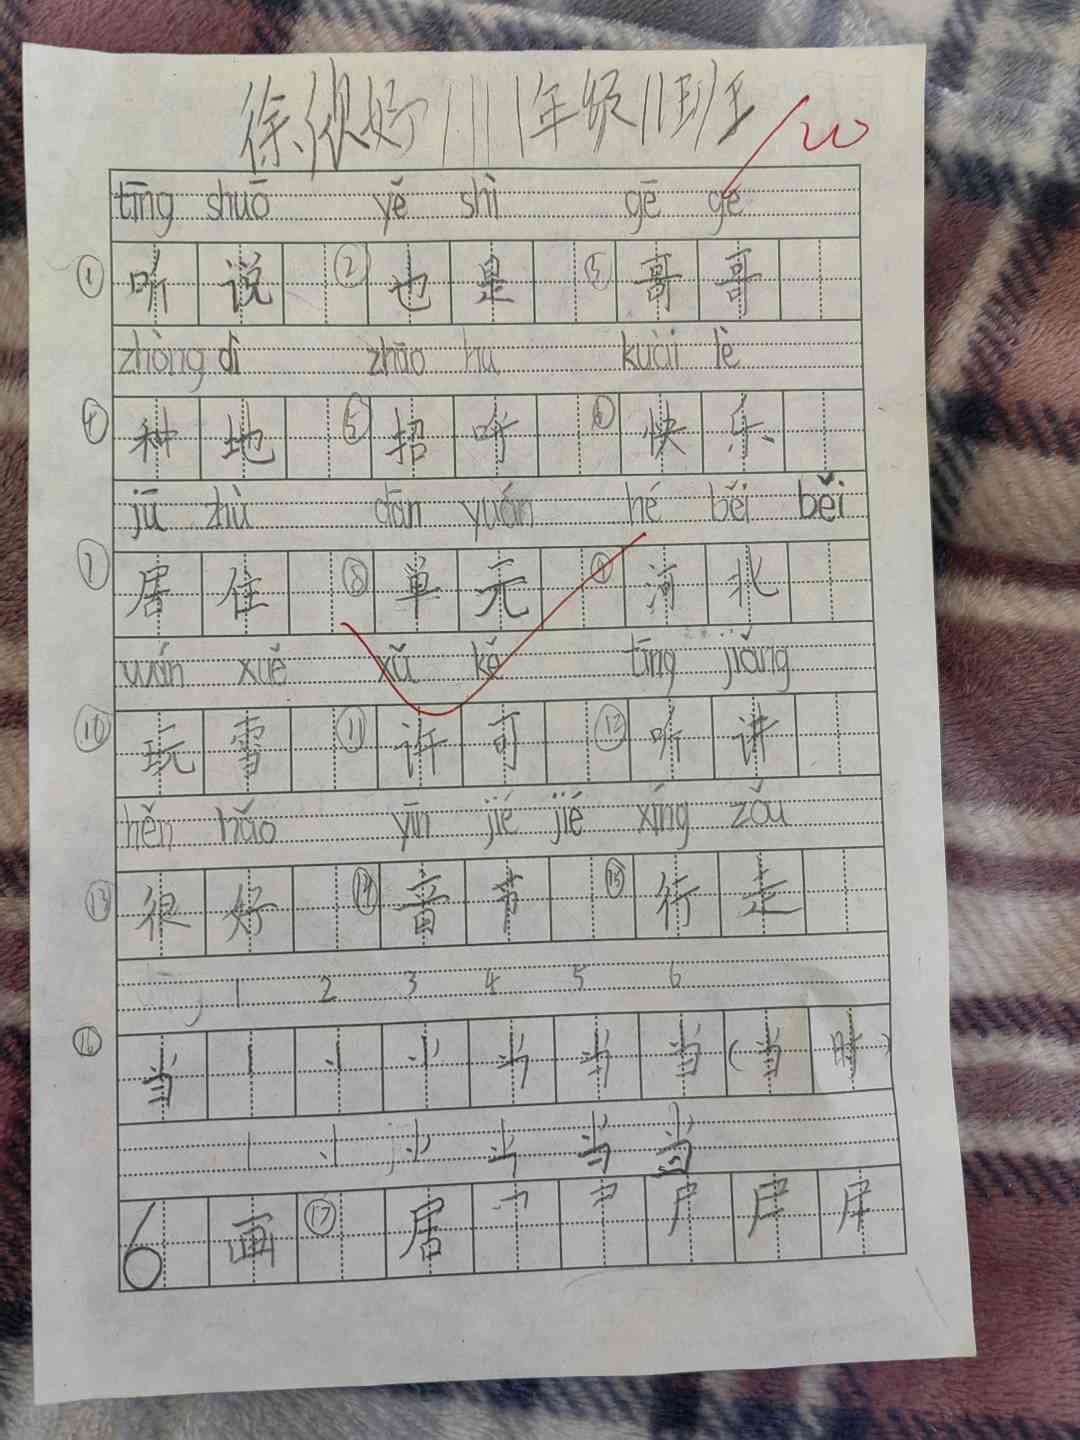 徐佷好 1 1 1 1年级11班 100
tīng shuō yě shì gē ge
① 听 说 ② 也 是 ③ 哥 哥
zhòng dì zhāo hu kuài lè
④ 种 地 ⑤ 招 呼 ⑥ 快 乐
jū zhù dān yuán hé běi běi
⑦ 居 住 ⑧ 单 元 ⑨ 河 北
wán xuě xǔ kě tīng jiǎng
⑩ 玩 雪 ⑪ 许 可 ⑫ 听 讲
hěn hǎo yīn jié jié xíng zǒu
⑬ 很 好 ⑭ 音 节 ⑮ 行 走
1 2 3 4 5 6
⑯ 当 当 (当 时)
当
6 画 ⑰ 居 尸